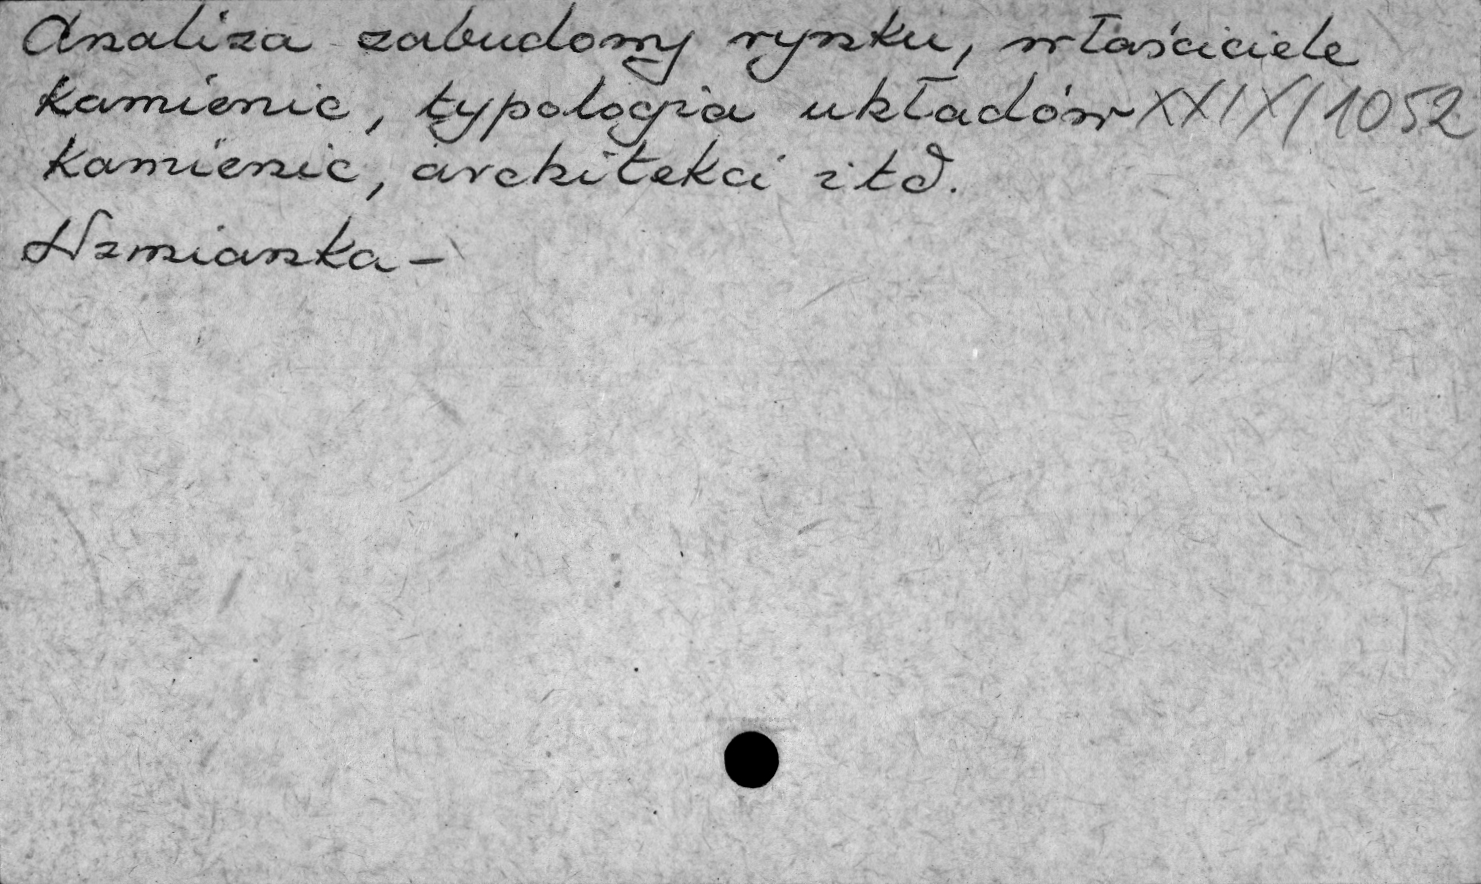 Analiza zabudowy rynku, właściciele
kamienic, typologia układów XXIX/1052
kamienic, architekci itd.
Wzmianka –